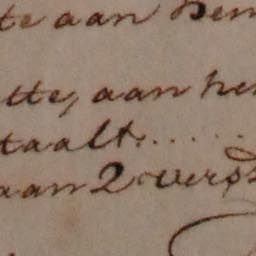 te aan hem
tte, aan he
taalt......
aan 2 vers